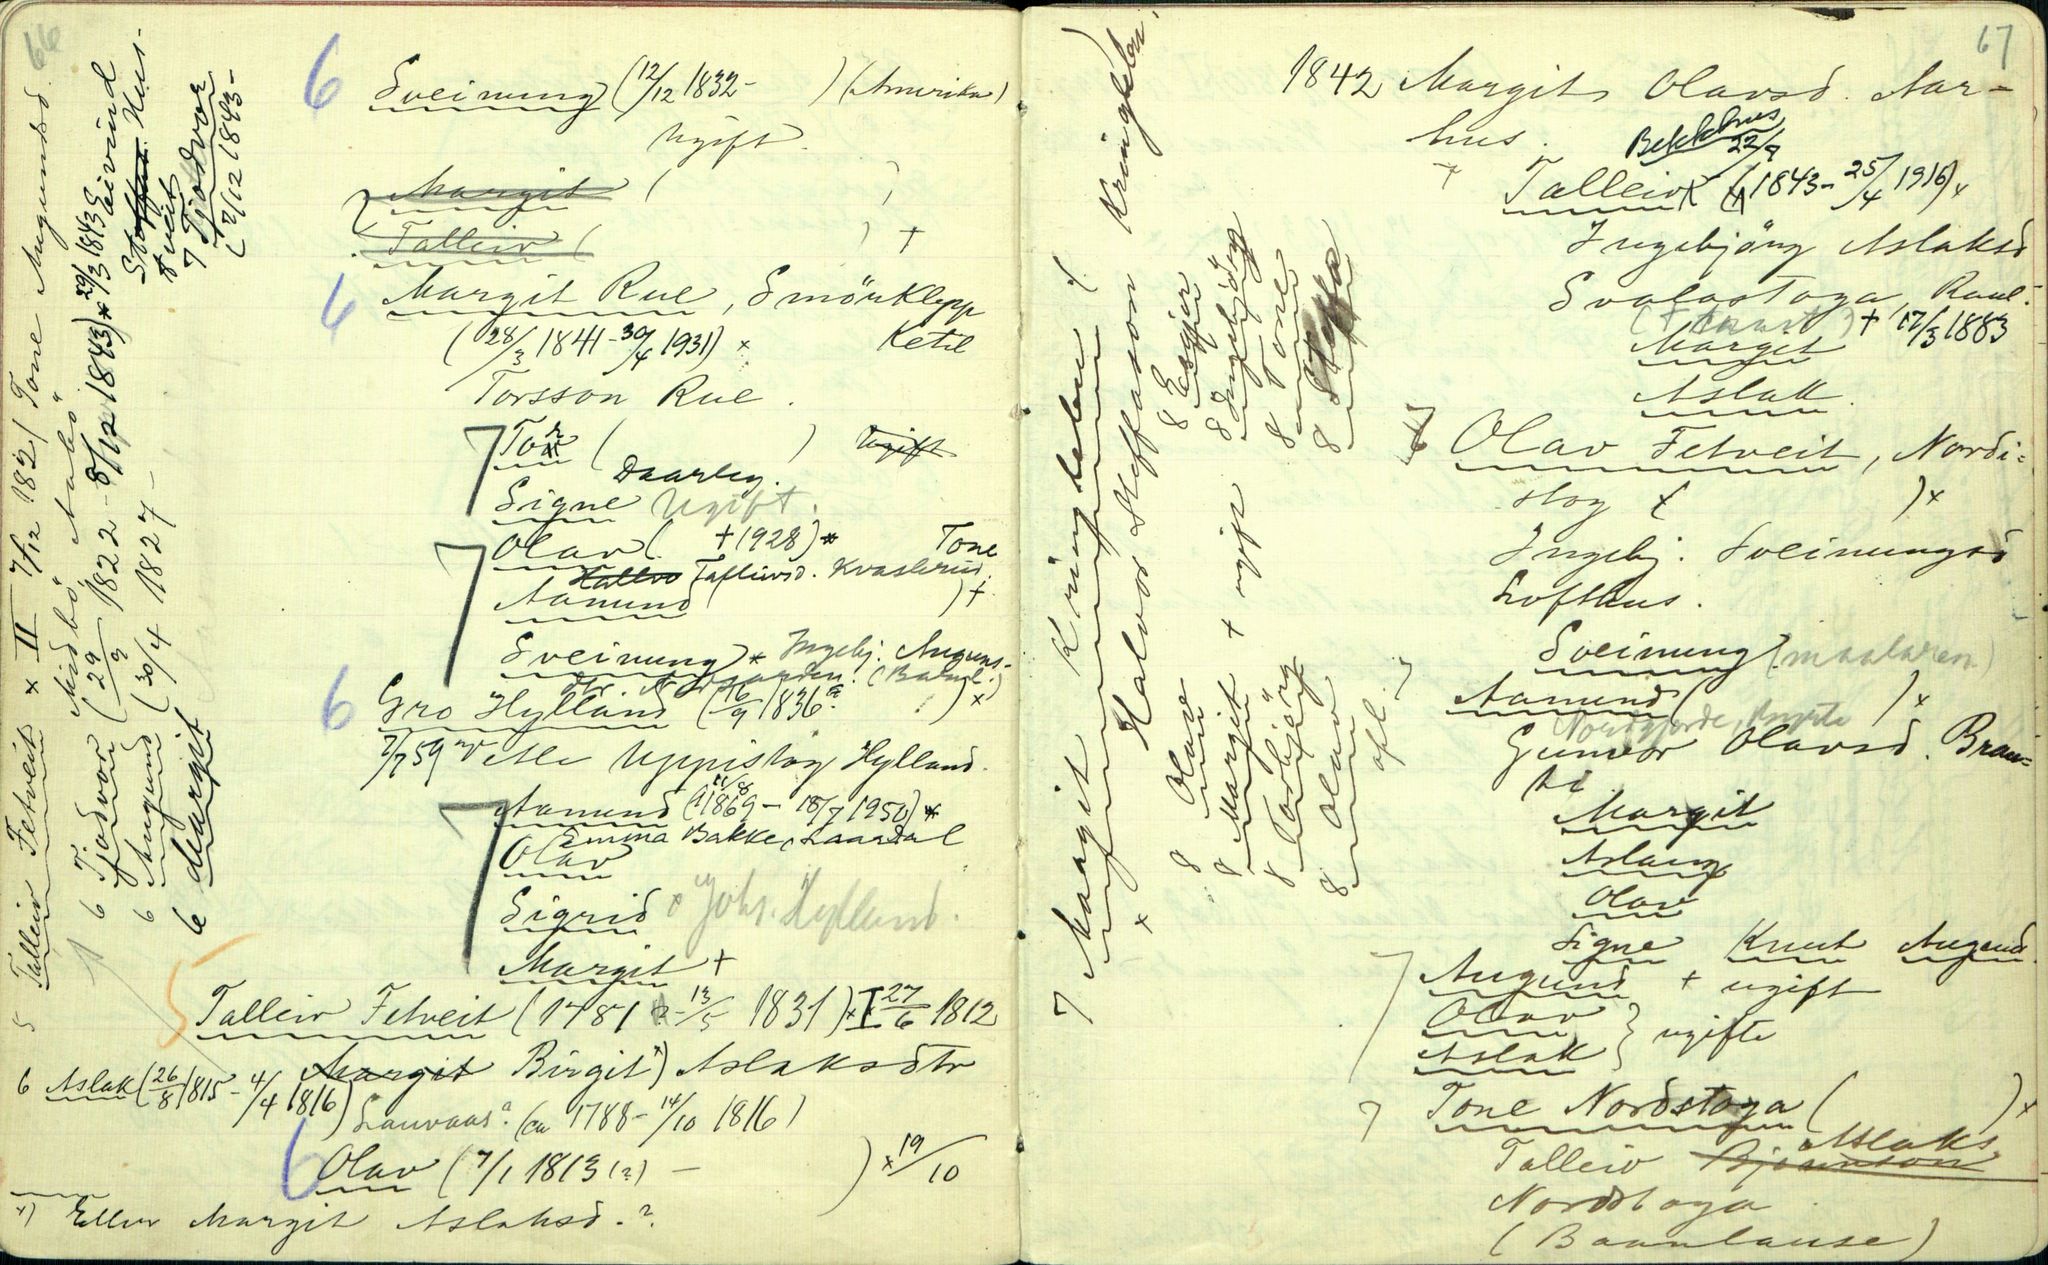 66
6 Sveinung (12/12 1832 - ) (Amerika)
Ugift.
Margit ( )
Talleiv ( ) +
6 Margit Rue, Smörklepp
(28/3 1841 - 30/4 1931) × Ketil
Torsson Rue.
7 Tor ( ) Ugift
Daarleg.
Signe Ugift.
7 Olav ( +1928) × Tone
Tallivsd. Kvaslerud.
Aamund ) +
Sveinung × Ingebj. Auguns-
dtr. (Bamle)
6 Gro Hylland (16/9 1836 ) ×
7/7 59 Ale Uppistog Hylland.
7 Aamund (11/8 1869 - 18/7 1950) ×
Emma Bakke, Laardal
Olav
Sigrid × Johs. Hylland.
Margit +
5 Talleiv Fetveit (1781 - 13/5 1831) × I 27/6 1812
Margit Birgit ×) Aslaksdtr
6 Aslak (26/8 1815 - 4/4 1816)
Lauvaas. (ca 1788 - 14/10 1816)
6 Olav (7/1 1813 (?) - ) × 19/10
×) Eller Margit Aslaksd. ?
5 Talleiv Fetveit × II 7/12 1821 Tone Augundsd.
Midbö "Aabö"
6 Tjodvor (29/9 1822 - 8/12 1843) × 29/3 1843 Eivind
Steffen Hus-
tveit
7 Tjodvor
(2/12 1843 -
6 Augund (30/4 1827 -
6 Margit
67
1842 Margit Olavsd. Aar-
hus.
Bekkhus
7 Talleiv (22/9 1843 - 25/4 1916) ×
Ingebjörg Aslaksd
Svalastoga, Raul.
( ) + 17/3 1883
Margit
Aslak.
7 Olav Fetveit, Nordi-
stog ( ) ×
Ingebj. Sveinungsd
Lofthus.
Sveinung (maalaren)
Aamund ( ) ×
Nordgjorde,
Gunvor Olavsd. Brau-
ti
Margit
Aslaug
Olav
Signe Knut Augund.
7 Augund + ugift
Olav
Aslak } ugifte
7 Tone Nordstoga ( ) ×
Talleiv Bjørnson Aslaks.
Nordstoga
(Baanlause)
7 Margit Kringlebu (
× Halvor Steffason Kringlebu.
8 Olav
8 Margit + ugift
8 Torbjörg
8 Olav
ofl.
8 Esgjer
8 Ingebjörg
8 Tone
8 Steffa